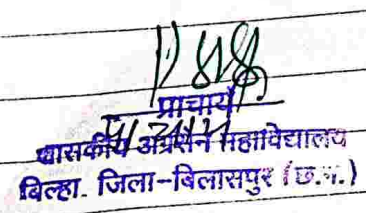 प्राचार्य
शासकीय अग्रसेन महाविद्यालय
बिल्हा. जिला-बिलासपुर (छ.ग.)